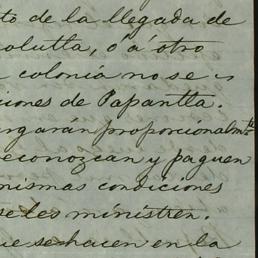 to de la llegada de
olutla, ó á otro
colonia no se
ciones de Papantla.
rgarán proporcionalmte
econozcan y paguen
mismas condiciones
se les ministren.
ue se hacen en la